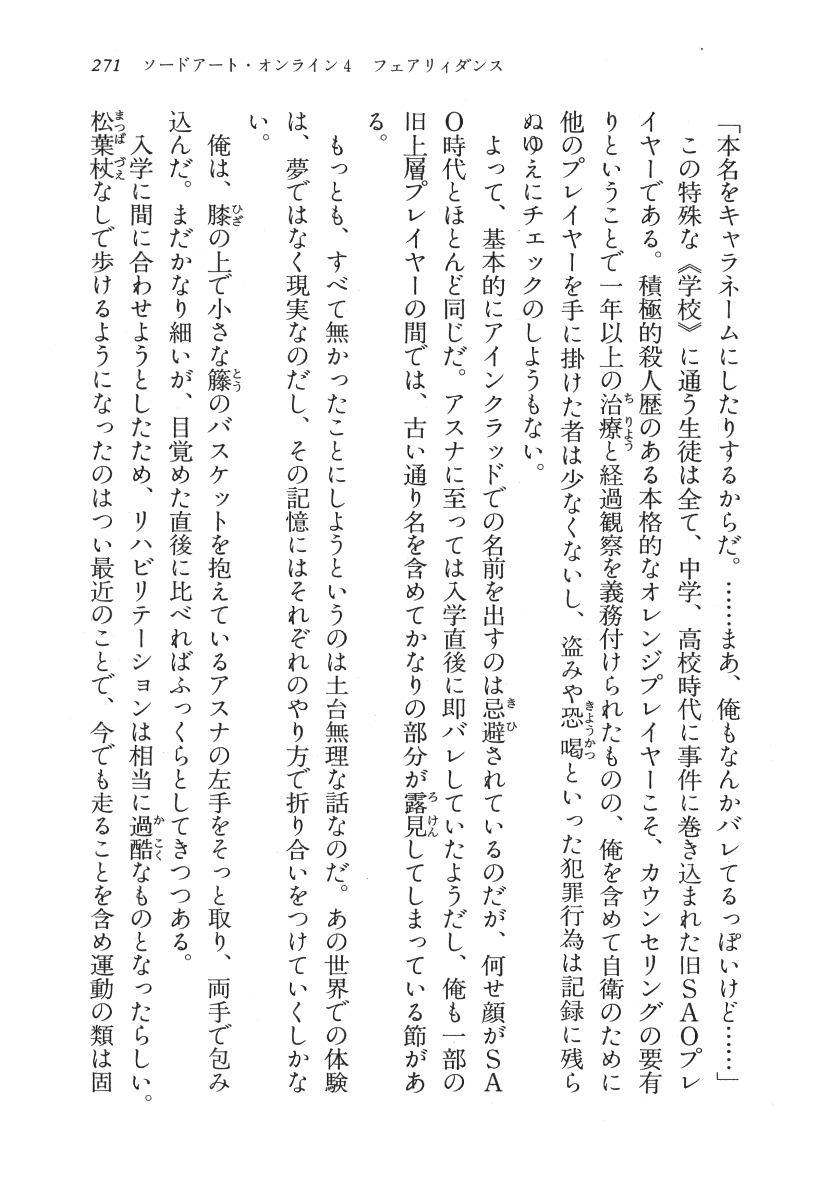 271　ソードアート・オンライン4　フェアリィダンス
「本名をキャラネームにしたりするからだ。……まあ、俺もなんかバレてるっぽいけど……」
　この特殊な《学校》に通う生徒は全て、中学、高校時代に事件に巻き込まれた旧ＳＡＯプレ
イヤーである。積極的殺人歴のある本格的なオレンジプレイヤーこそ、カウンセリングの要有
りということで一年以上の治療と経過観察を義務付けられたものの、俺を含めて自衛のために
他のプレイヤーを手に掛けた者は少なくないし、盗みや恐喝といった犯罪行為は記録に残ら
ぬゆえにチェックのしようもない。
　よって、基本的にアインクラッドでの名前を出すのは忌避されているのだが、何せ顔がＳＡ
Ｏ時代とほとんど同じだ。アスナに至っては入学直後に即バレしていたようだし、俺も一部の
旧上層プレイヤーの間では、古い通り名を含めてかなりの部分が露見してしまっている節があ
る。
　もっとも、すべて無かったことにしようというのは土台無理な話なのだ。あの世界での体験
は、夢ではなく現実なのだし、その記憶にはそれぞれのやり方で折り合いをつけていくしかな
い。
　俺は、膝の上で小さな籐のバスケットを抱えているアスナの左手をそっと取り、両手で包み
込んだ。まだかなり細いが、目覚めた直後に比べればふっくらとしてきつつある。
　入学に間に合わせようとしたため、リハビリテーションは相当に過酷なものとなったらしい。
松葉杖なしで歩けるようになったのはつい最近のことで、今でも走ることを含め運動の類は固